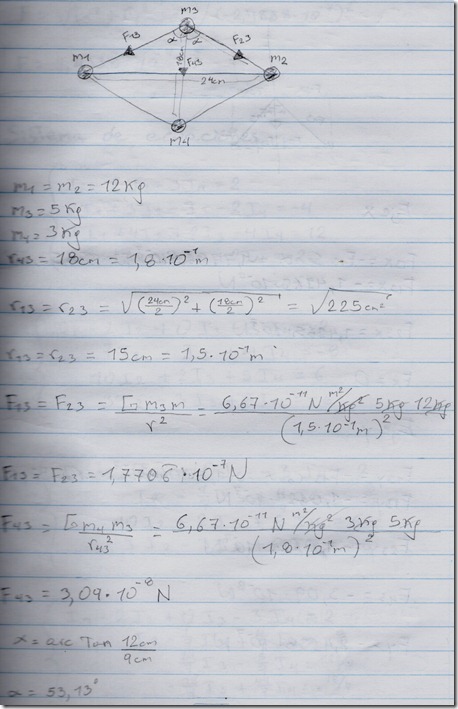 m3
F13 α α F23
18cm
m1 F43 m2
24cm
m4
m1 = m2 = 12Kg
m3 = 5Kg
m4 = 3Kg
r43 = 18cm = 1,8·10⁻¹m
r13 = r23 = √((24cm/2)² + (18cm/2)²) = √225cm²
r13 = r23 = 15cm = 1,5·10⁻¹m
F13 = F23 = G m3 m / r² = 6,67·10⁻¹¹ N m²/Kg² 5Kg 12Kg / (1,5·10⁻¹m)²
F13 = F23 = 1,7706·10⁻⁷N
F43 = G m4 m3 / r43² = 6,67·10⁻¹¹ N m²/Kg² 3Kg 5Kg / (1,8·10⁻¹m)²
F43 = 3,09·10⁻⁸ N
α = arc Tan 12cm/9cm
α = 53,13°